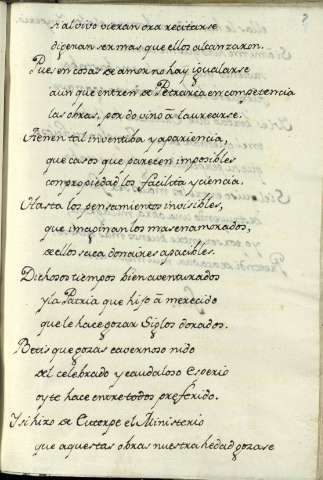 si al vivo vieran ora recitarse
dijeran ser mas que ellos alcanzaron.
Pues en cosas de amor no hay igualarse
aun que entren de Petrarca en competencia
las obras, por do vino â laurearse.
tienen tal inventiba y apariencia,
que casos que parecen imposibles
con propiedad los facilita y ciencia.
Hasta los pensamientos invisibles,
que imaginan los mas enamorados,
de ellos saca donaires apacibles.
Dichosos tiempos bien aventurados
y la Patria que hijo â merecido
que le hace gozar Siglos dorados.
Betis que gozas cavernoso nido
del celebrado y caudaloso Esperio
oy te hace entre todos preferido.
Y si hizo de Euterpe el Ministerio
que aquestas obras nuestra hedad gozase